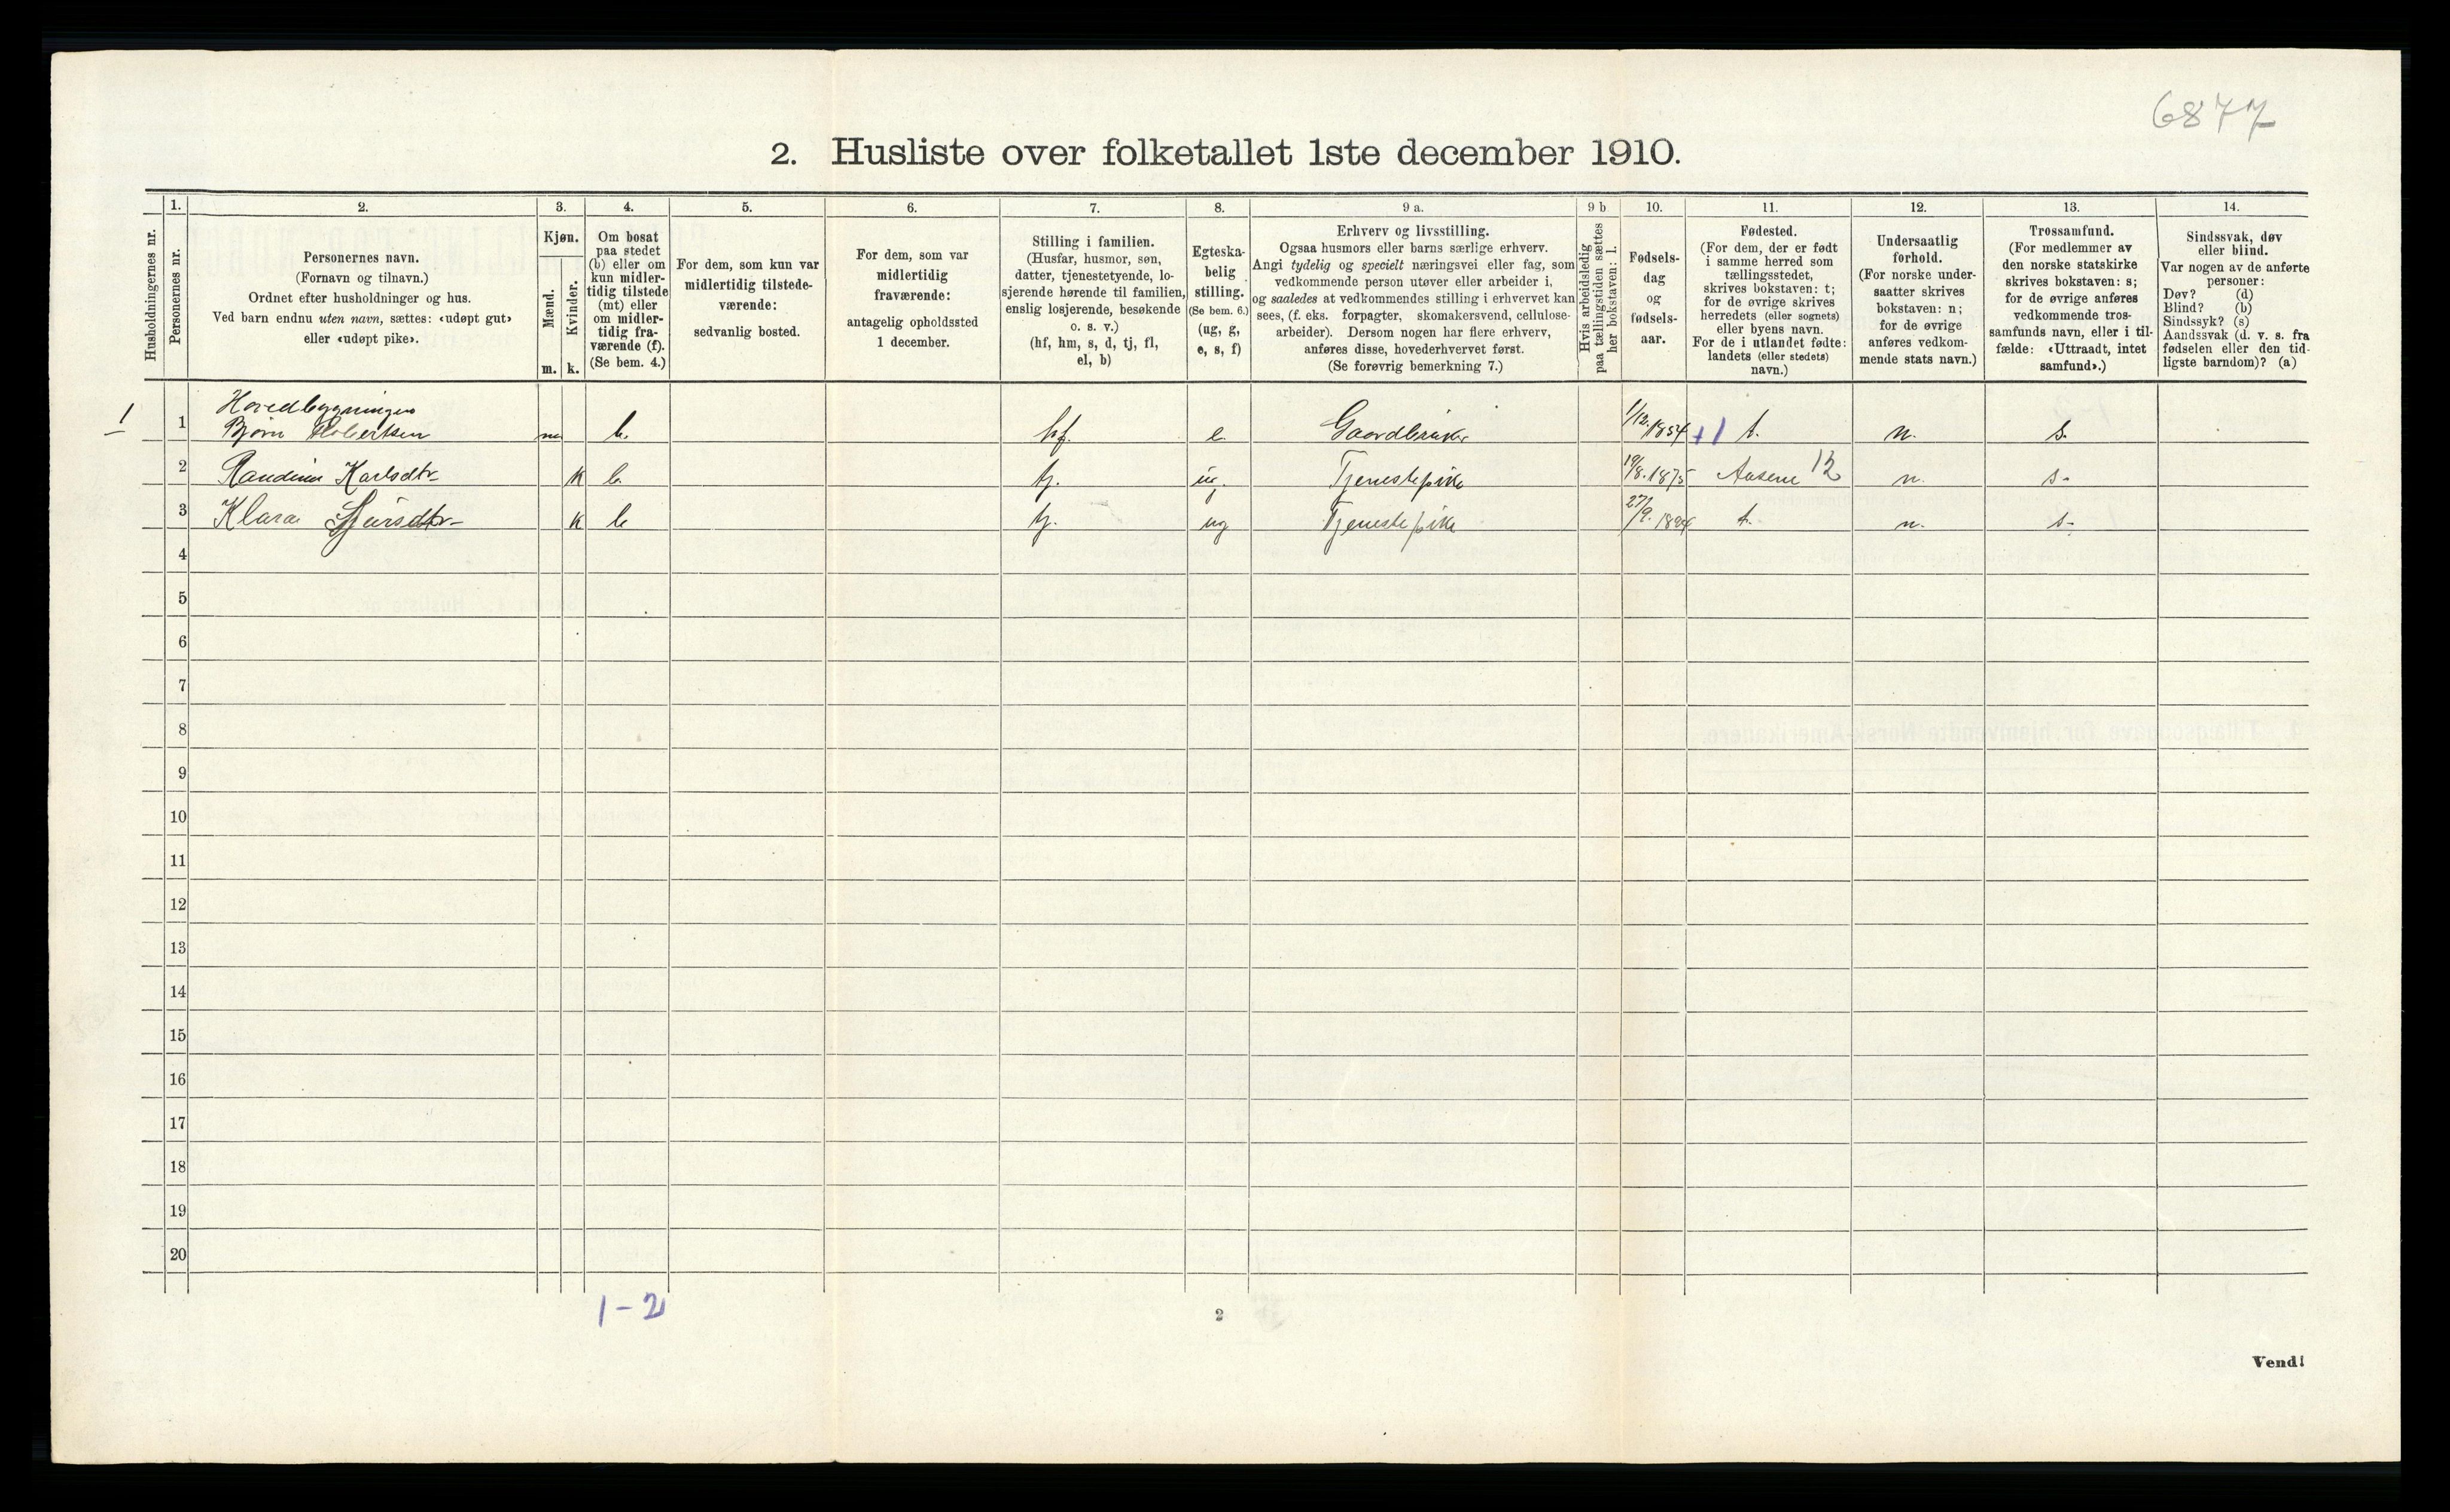 6877
2. Husliste over folketallet 1ste december 1910.
Husholdningernes nr.
1.
Personernes nr.
2.
Personernes navn.
(Fornavn og tilnavn.)
Ordnet efter husholdninger og hus.
Ved barn endnu uten navn, sættes: «udøpt gut»
eller «udøpt pike».
3.
Kjøn.
Mænd.
m.
Kvinder.
k.
4.
Om bosat
paa stedet
(b) eller om
kun midler-
tidig tilstede
(mt) eller
om midler-
tidig fra-
værende (f).
(Se bem. 4.)
5.
For dem, som kun var
midlertidig tilstede-
værende:
sedvanlig bosted.
6.
For dem, som var
midlertidig
fraværende:
antagelig opholdssted
1 december.
7.
Stilling i familien.
(Husfar, husmor, søn,
datter, tjenestetyende, lo-
sjerende hørende til familien,
enslig losjerende, besøkende
o. s. v.)
(hf, hm, s, d, tj, fl,
el, b)
8.
Egteska-
belig
stilling.
(Se bem. 6.)
(ug, g,
e, s, f)
9 a.
Erhverv og livsstilling.
Ogsaa husmors eller barns særlige erhverv.
Angi tydelig og specielt næringsvei eller fag, som
vedkommende person utøver eller arbeider i,
og saaledes at vedkommendes stilling i erhvervet kan
sees, (f. eks. forpagter, skomakersvend, cellulose-
arbeider). Dersom nogen har flere erhverv,
anføres disse, hovederhvervet først.
(Se forøvrig bemerkning 7.)
9 b
Hvis arbeidsledig
paa tællingstiden sættes
her bokstaven: l.
10.
Fødsels-
dag
og
fødsels-
aar.
11.
Fødested.
(For dem, der er født
i samme herred som
tællingsstedet,
skrives bokstaven: t;
for de øvrige skrives
herredets (eller sognets)
eller byens navn.
For de i utlandet fødte:
landets (eller stedets)
navn.)
12.
Undersaatlig
forhold.
(For norske under-
saatter skrives
bokstaven: n;
for de øvrige
anføres vedkom-
mende stats navn.)
13.
Trossamfund.
(For medlemmer av
den norske statskirke
skrives bokstaven: s;
for de øvrige anføres
vedkommende tros-
samfunds navn, eller i til-
fælde: «Uttraadt, intet
samfund».)
14.
Sindssvak, døv
eller blind.
Var nogen av de anførte
personer:
Døv? (d)
Blind? (b)
Sindssyk? (s)
Aandssvak (d. v. s. fra
fødselen eller den tid-
ligste barndom)? (a)
Hovedbygningen
1 1 Bjørn m b. hf. e. Gaardbruker 1/12.1854 +1 t. n. s.
2 Karlsdtr k b. tj. ug. Tjenestepike 19/8.1875 Aasene 12 n. s.
3 Klara k b tj. ug Tjenestepike 27/9. t. n. s.
4
5
6
7
8
9
10
11
12
13
14
15
16
17
18
19
20
1 - 2
2
Vend!